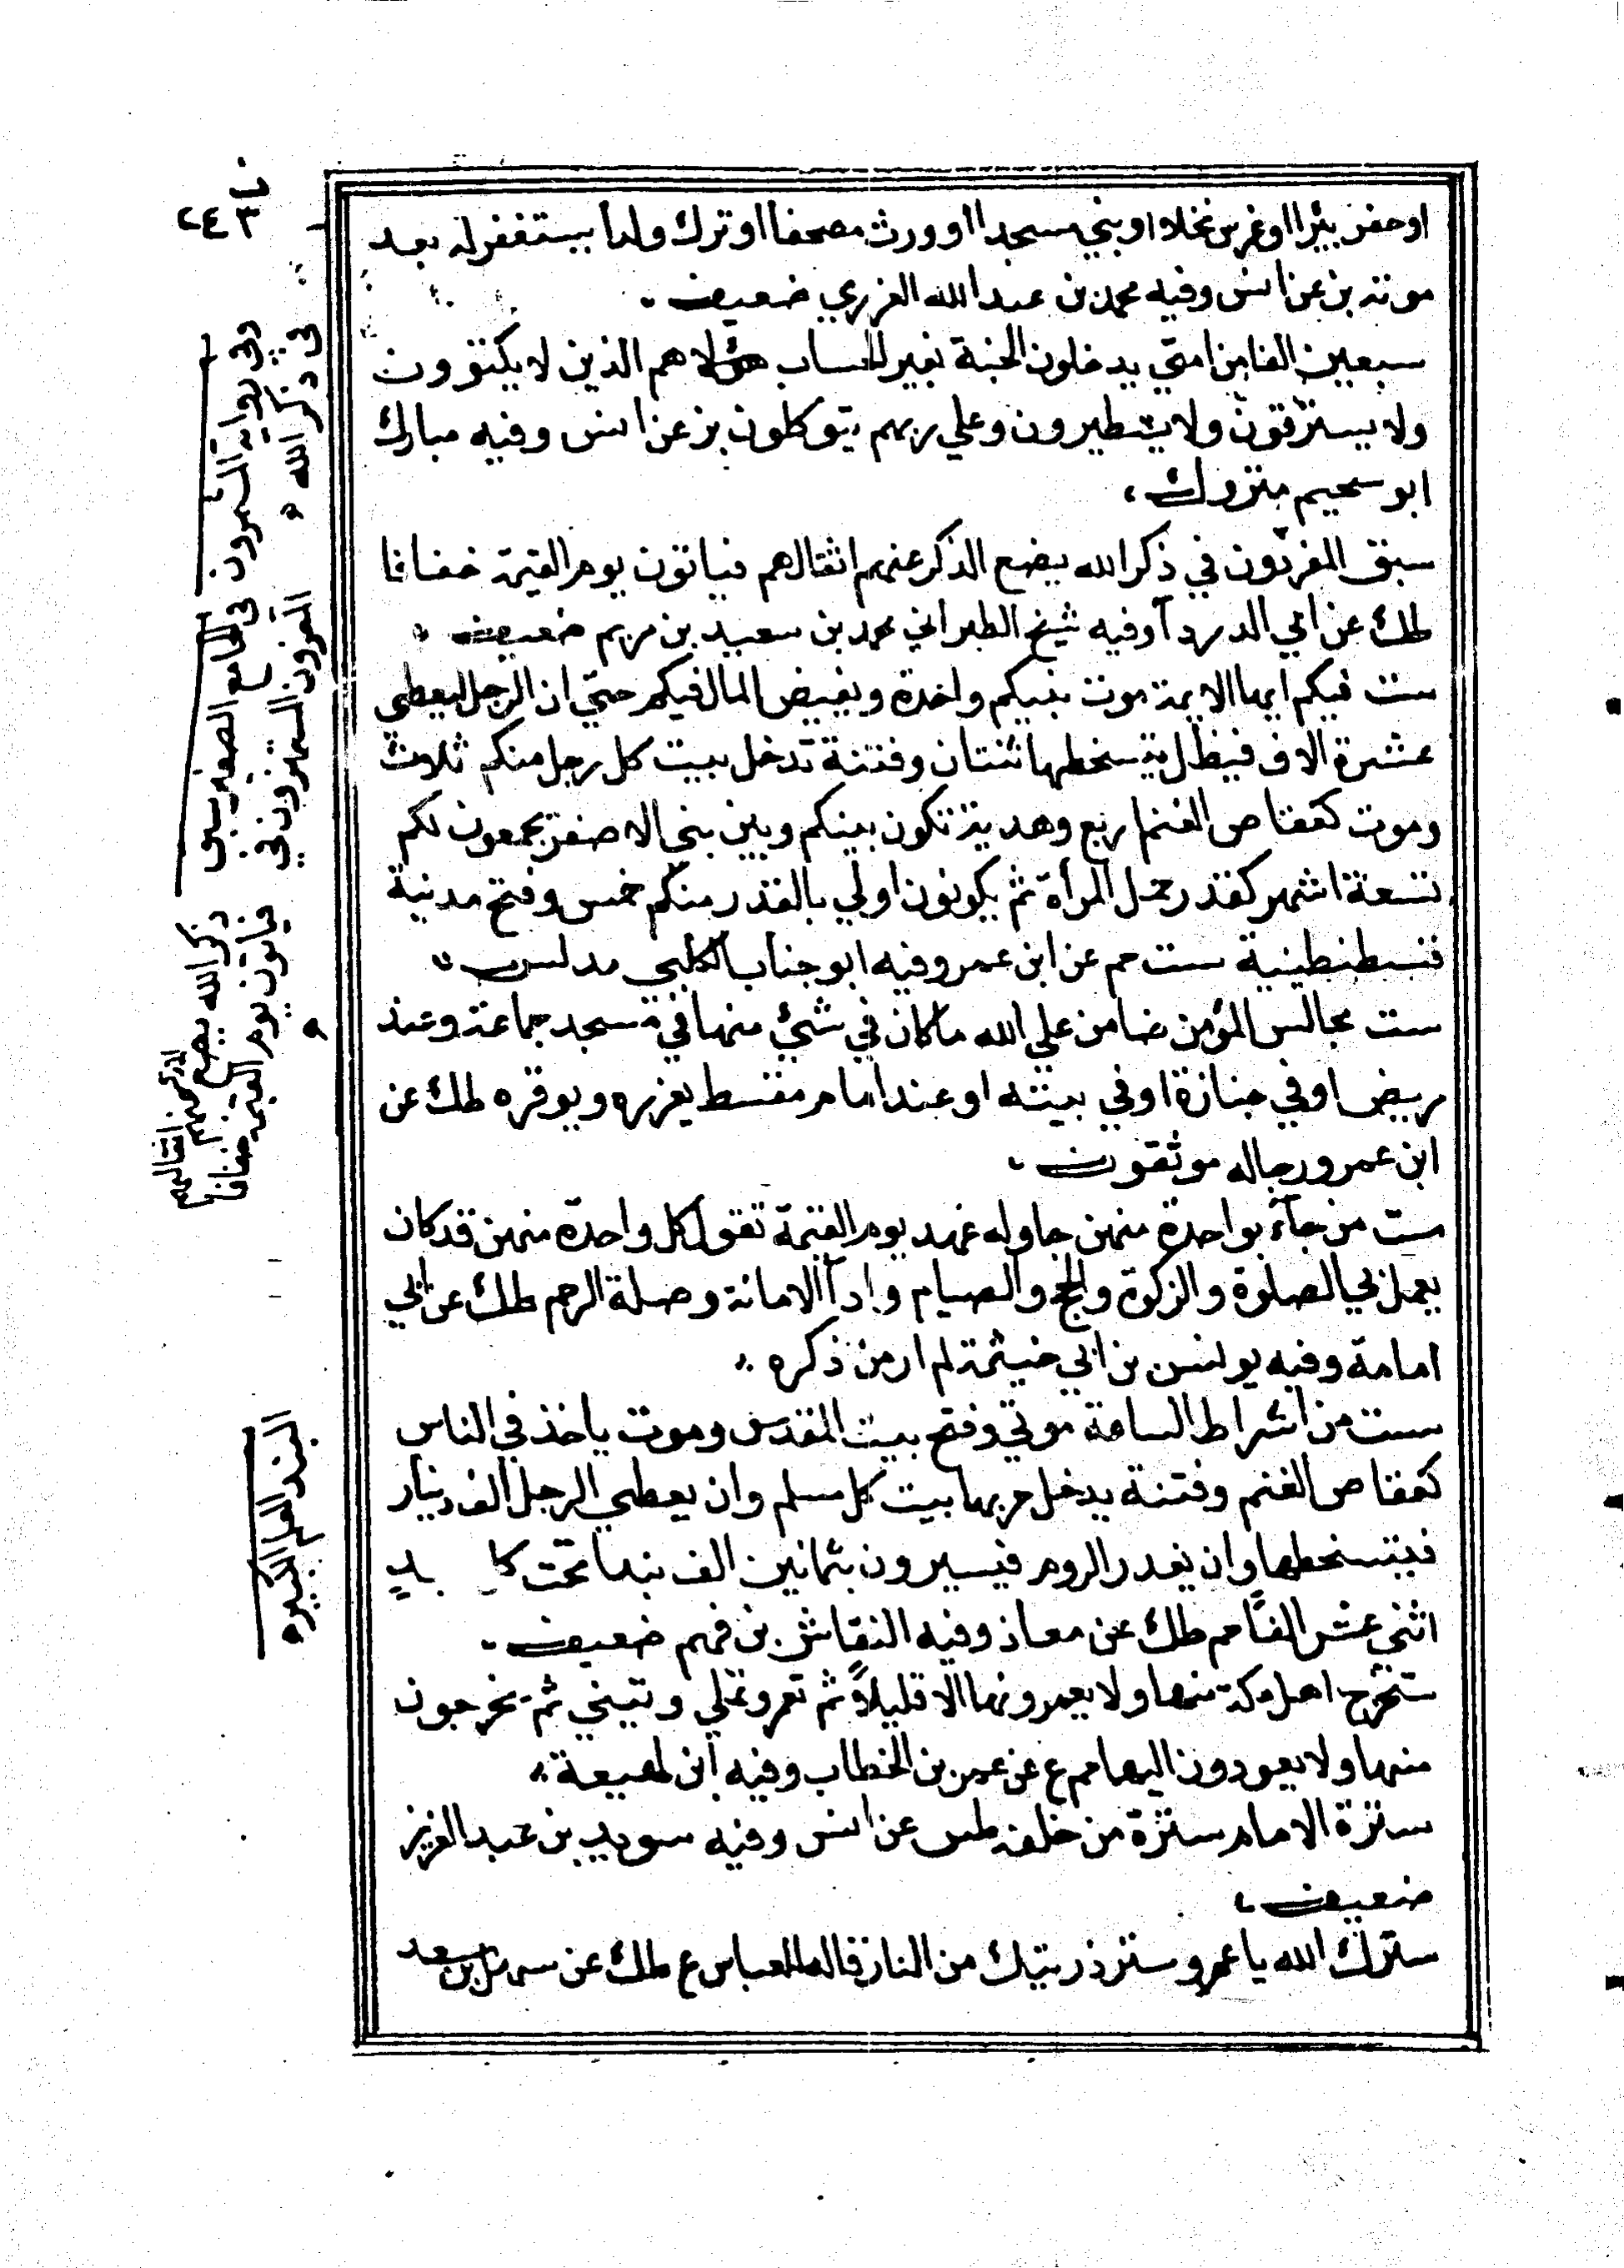 ٢٤٣
او حفر بيرا او غرس نخلا او بني مسجدا او ورث مصحفا او ترك ولدا يستغفر له بعد
موته بز عن انس وفيه محمد بن عبد الله العزري ضعيف
سبعين الفا من امتي يدخلون الجنة بغير حساب هؤلا هم الذين لا يكتوون
ولا يسترقون ولا يتطيرون وعلي ربهم يتوكلون بز عن انس وفيه مبارك
ابو سحيم متروك
سبق المفردون في ذكر الله يضع الذكر عنهم اثقالهم فياتون يوم القيمة خفافا
طك عن ابي الدردآ وفيه شيخ الطبراني محمد بن سعيد بن مريم ضعيف
ست فيكم ايها الامة موت نبيكم واحدة ويفيض المال فيكم حتي ان الرجل ليعطي
عشرة الاف فيظل يتسخطها ثنتان وفتنة تدخل بيت كل رجل منكم ثلاث
وموت كقعاص الغنم اربع وهدنة تكون بينكم وبين بني الاصفر يجمعون لكم
تسعة اشهر كقدر حمل المرأة ثم يكونون اولي بالغدر منكم خمس وفتح مدينة
قسطنطينية ست حم عن ابن عمرو فيه ابو جناب الكلبي مدلس
ست مجالس المؤمن ضامن علي الله ما كان في شئ منها في مسجد جماعة وعند
مريض او في جنازة او في بيته او عند امام مقسط يعزره ويوقره طك عن
ابن عمرو رجاله موثقون
ست من جآء بواحدة منهن جا وله عهد يوم القيمة تقول كل واحدة منهن قد كان
يعمل بي الصلوة والزكوة والحج والصيام وادآ الامانة وصلة الرحم طك عن ابي
امامة وفيه يونس بن ابي خيثمة لم ار من ذكره
ست من اشراط الساعة موتي وفتح بيت المقدس وموت ياخذ في الناس
كقعاص الغنم وفتنة يدخل حربها بيت كل مسلم وان يعطي الرجل الف دينار
فيتسخطها وان يغدر الروم فيسيرون بثمانين الف بندا تحت كل بند
اثني عشر الفًا حم طك عن معاذ وفيه النقاش بن فهم ضعيف
ستخرج اهل مكة منها ولا يعمرونها الا قليلاً ثم تعمر وتملي وتبني ثم يخرجون
منها ولا يعودون اليها حم ع عن عمر بن الخطاب وفيه ابن لهيعة
سترة الامام سترة من خلفه طس عن انس وفيه سويد بن عبد العزيز
ضعيف
سترك الله يا عم وستر ذريتك من النار قاله للعباس ع طك عن سهل بن سعد
في ذكر الله
المفردون المستهترون في
ذكر الله يضع الذكر عنهم اثقالهم
فيأتون يوم القيمة خفافا
البند العلم الكبير